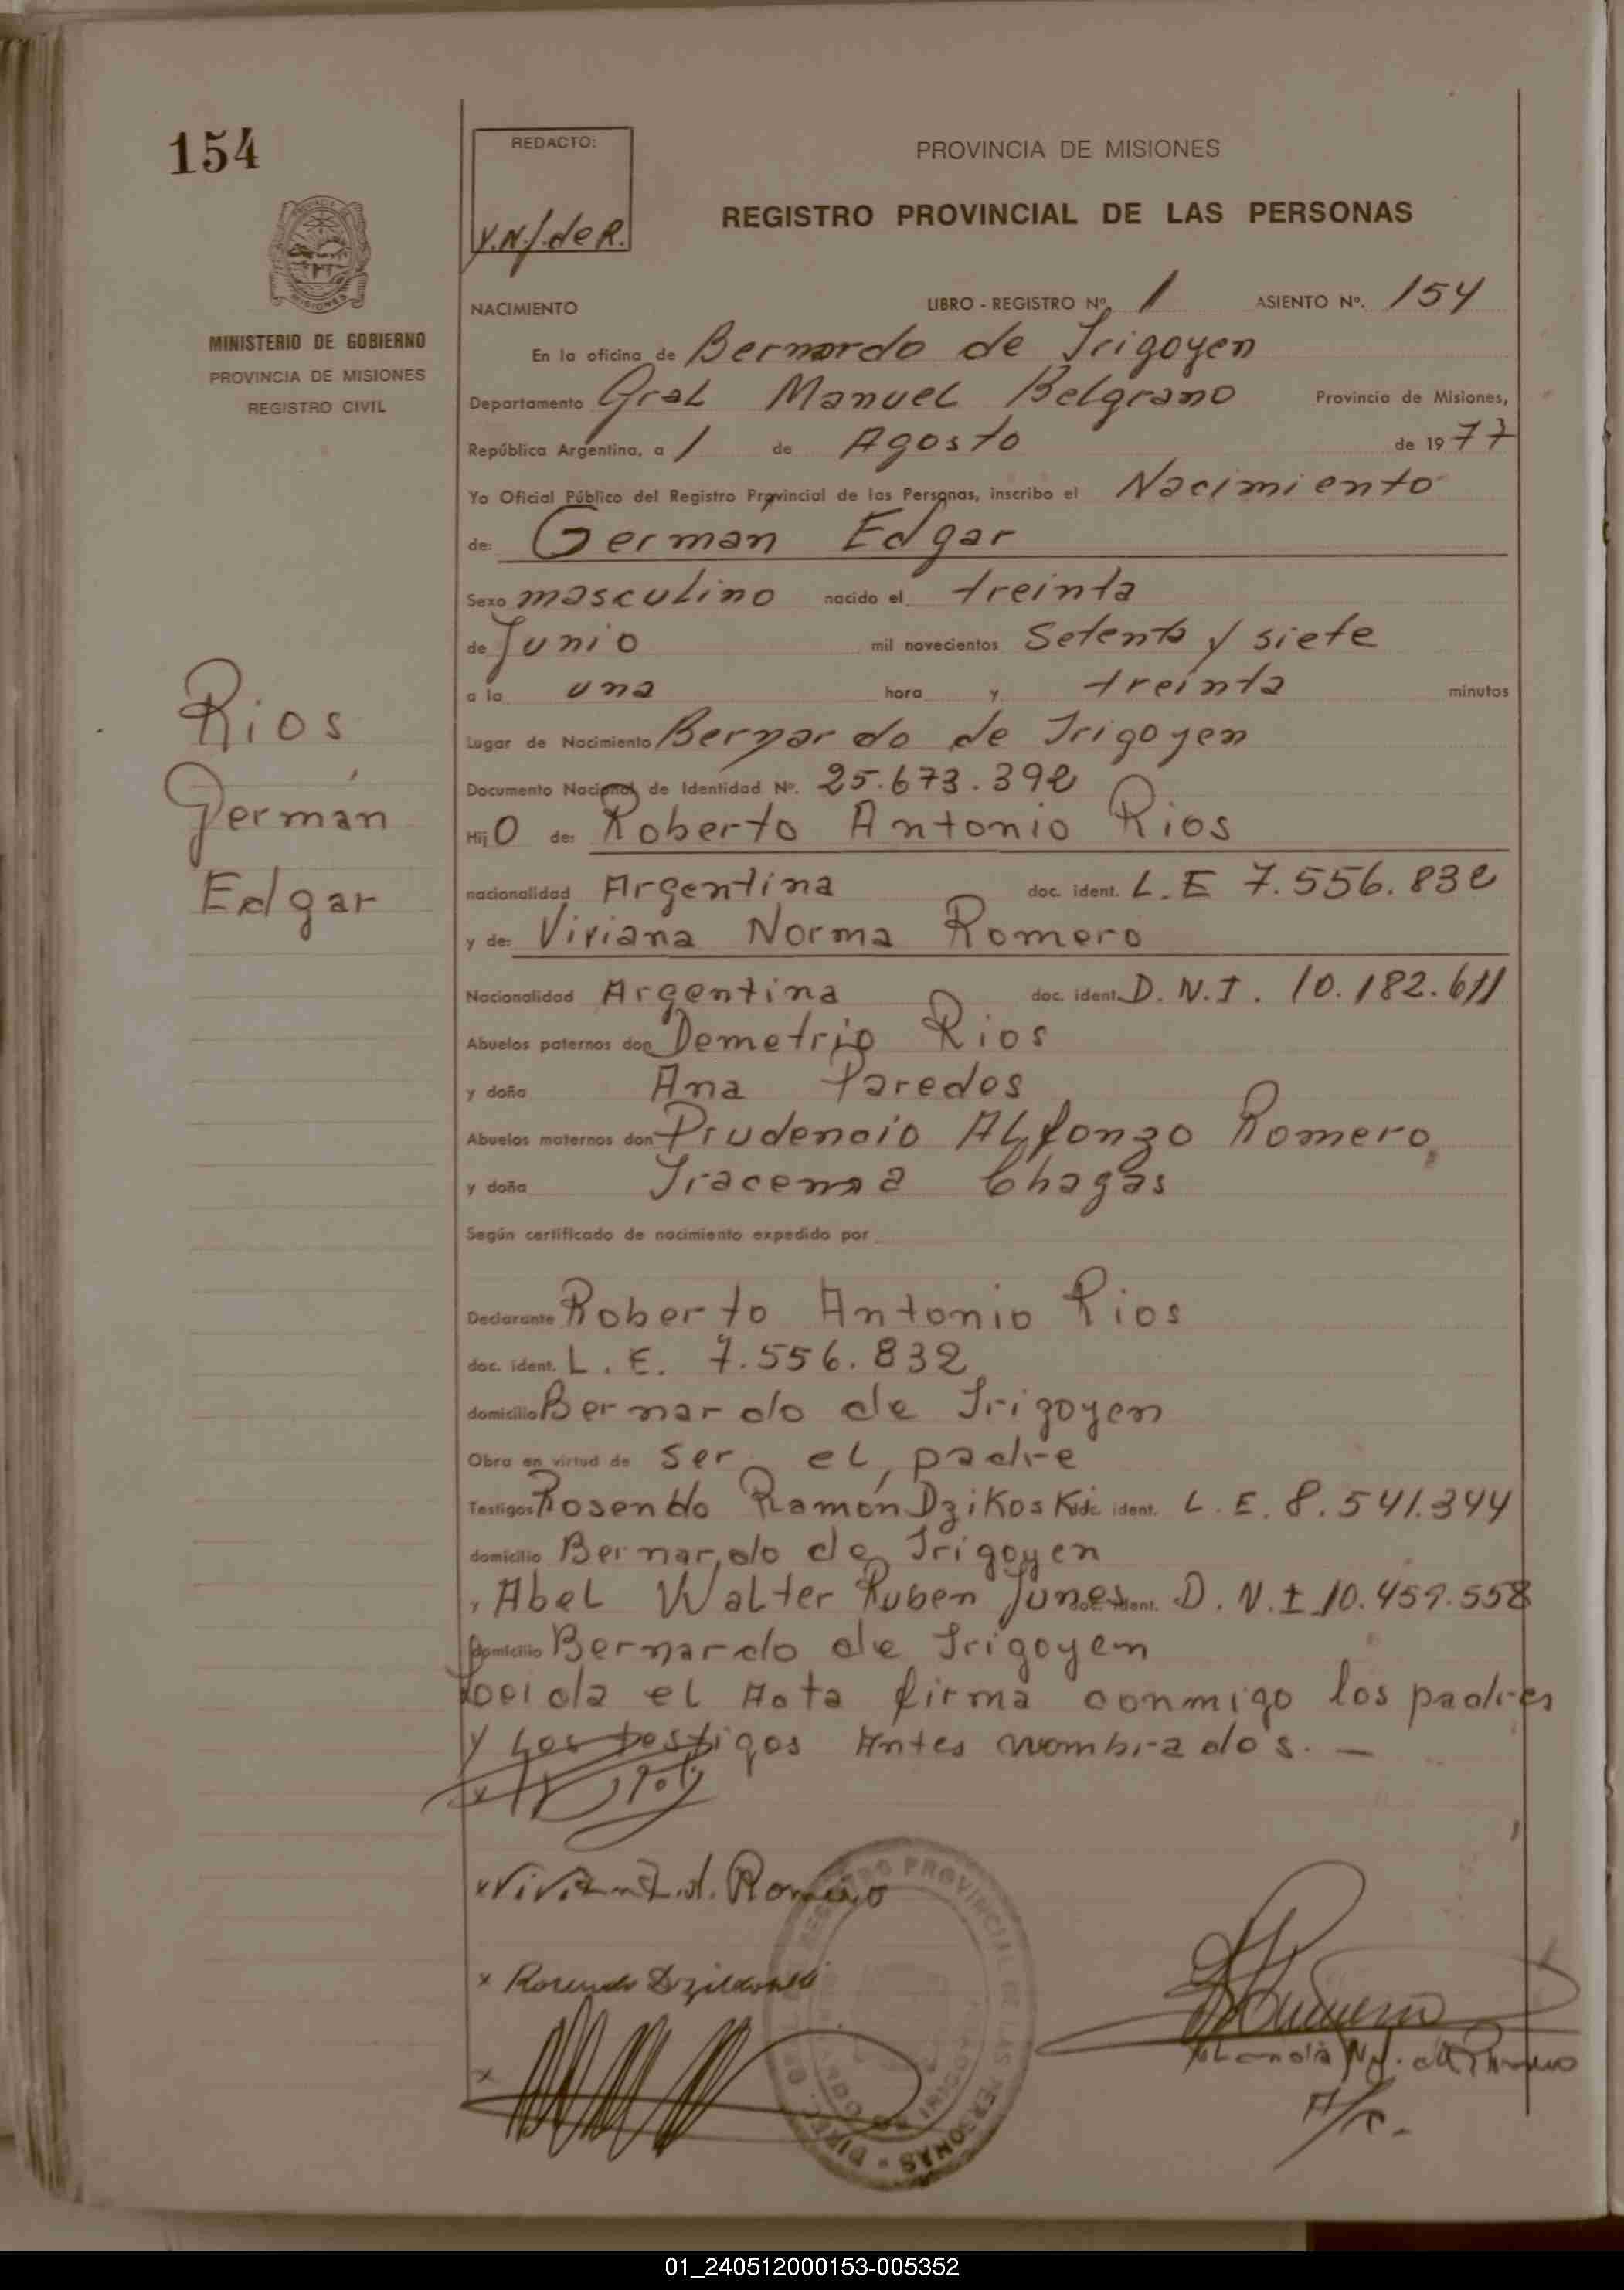 154
REDACTO:
Y.N.J. de R.
PROVINCIA DE MISIONES
REGISTRO PROVINCIAL DE LAS PERSONAS
MISIONES
MINISTERIO DE GOBIERNO
PROVINCIA DE MISIONES
REGISTRO CIVIL
NACIMIENTO LIBRO - REGISTRO Nº. 1 ASIENTO Nº. 154
En la oficina de Bernardo de Irigoyen
Departamento Gral Manuel Belgrano Provincia de Misiones,
República Argentina, a 1 de Agosto de 1977
Yo Oficial Público del Registro Provincial de las Personas, inscribo el Nacimiento
de: German Edgar
Sexo masculino nacido el treinta
de Junio mil novecientos Setenta y siete
a la una hora y treinta minutos
Rios
Germán
Edgar
Lugar de Nacimiento Bernardo de Irigoyen
Documento Nacional de Identidad Nº. 25.673.392
Hijo de: Roberto Antonio Rios
nacionalidad Argentina doc. ident. L.E 7.556.832
y de: Viviana Norma Romero
Nacionalidad Argentina doc. ident. D.N.I. 10.182.611
Abuelos paternos don Demetrio Rios
y doña Ana Paredes
Abuelos maternos don Prudencio Alfonzo Romero
y doña Iracema Chagas
Según certificado de nacimiento expedido por
Declarante Roberto Antonio Rios
doc. ident. L.E. 7.556.832
domicilio Bernardo de Irigoyen
Obra en virtud de ser el padre
Testigos Rosendo Ramón Dzikoski doc. ident. L.E. 8.541.344
domicilio Bernardo de Irigoyen
y Abel Walter Ruben Junes doc. ident. D.N.I. 10.459.558
domicilio Bernardo de Irigoyen
Leida el Acta firma conmigo los padres
y los testigos Antes nombrados. —
x Viviana N. Romero
x Rosendo Dzikoski
x
REGISTRO PROVINCIAL DE LAS PERSONAS
A/C.
01_240512000153-005352